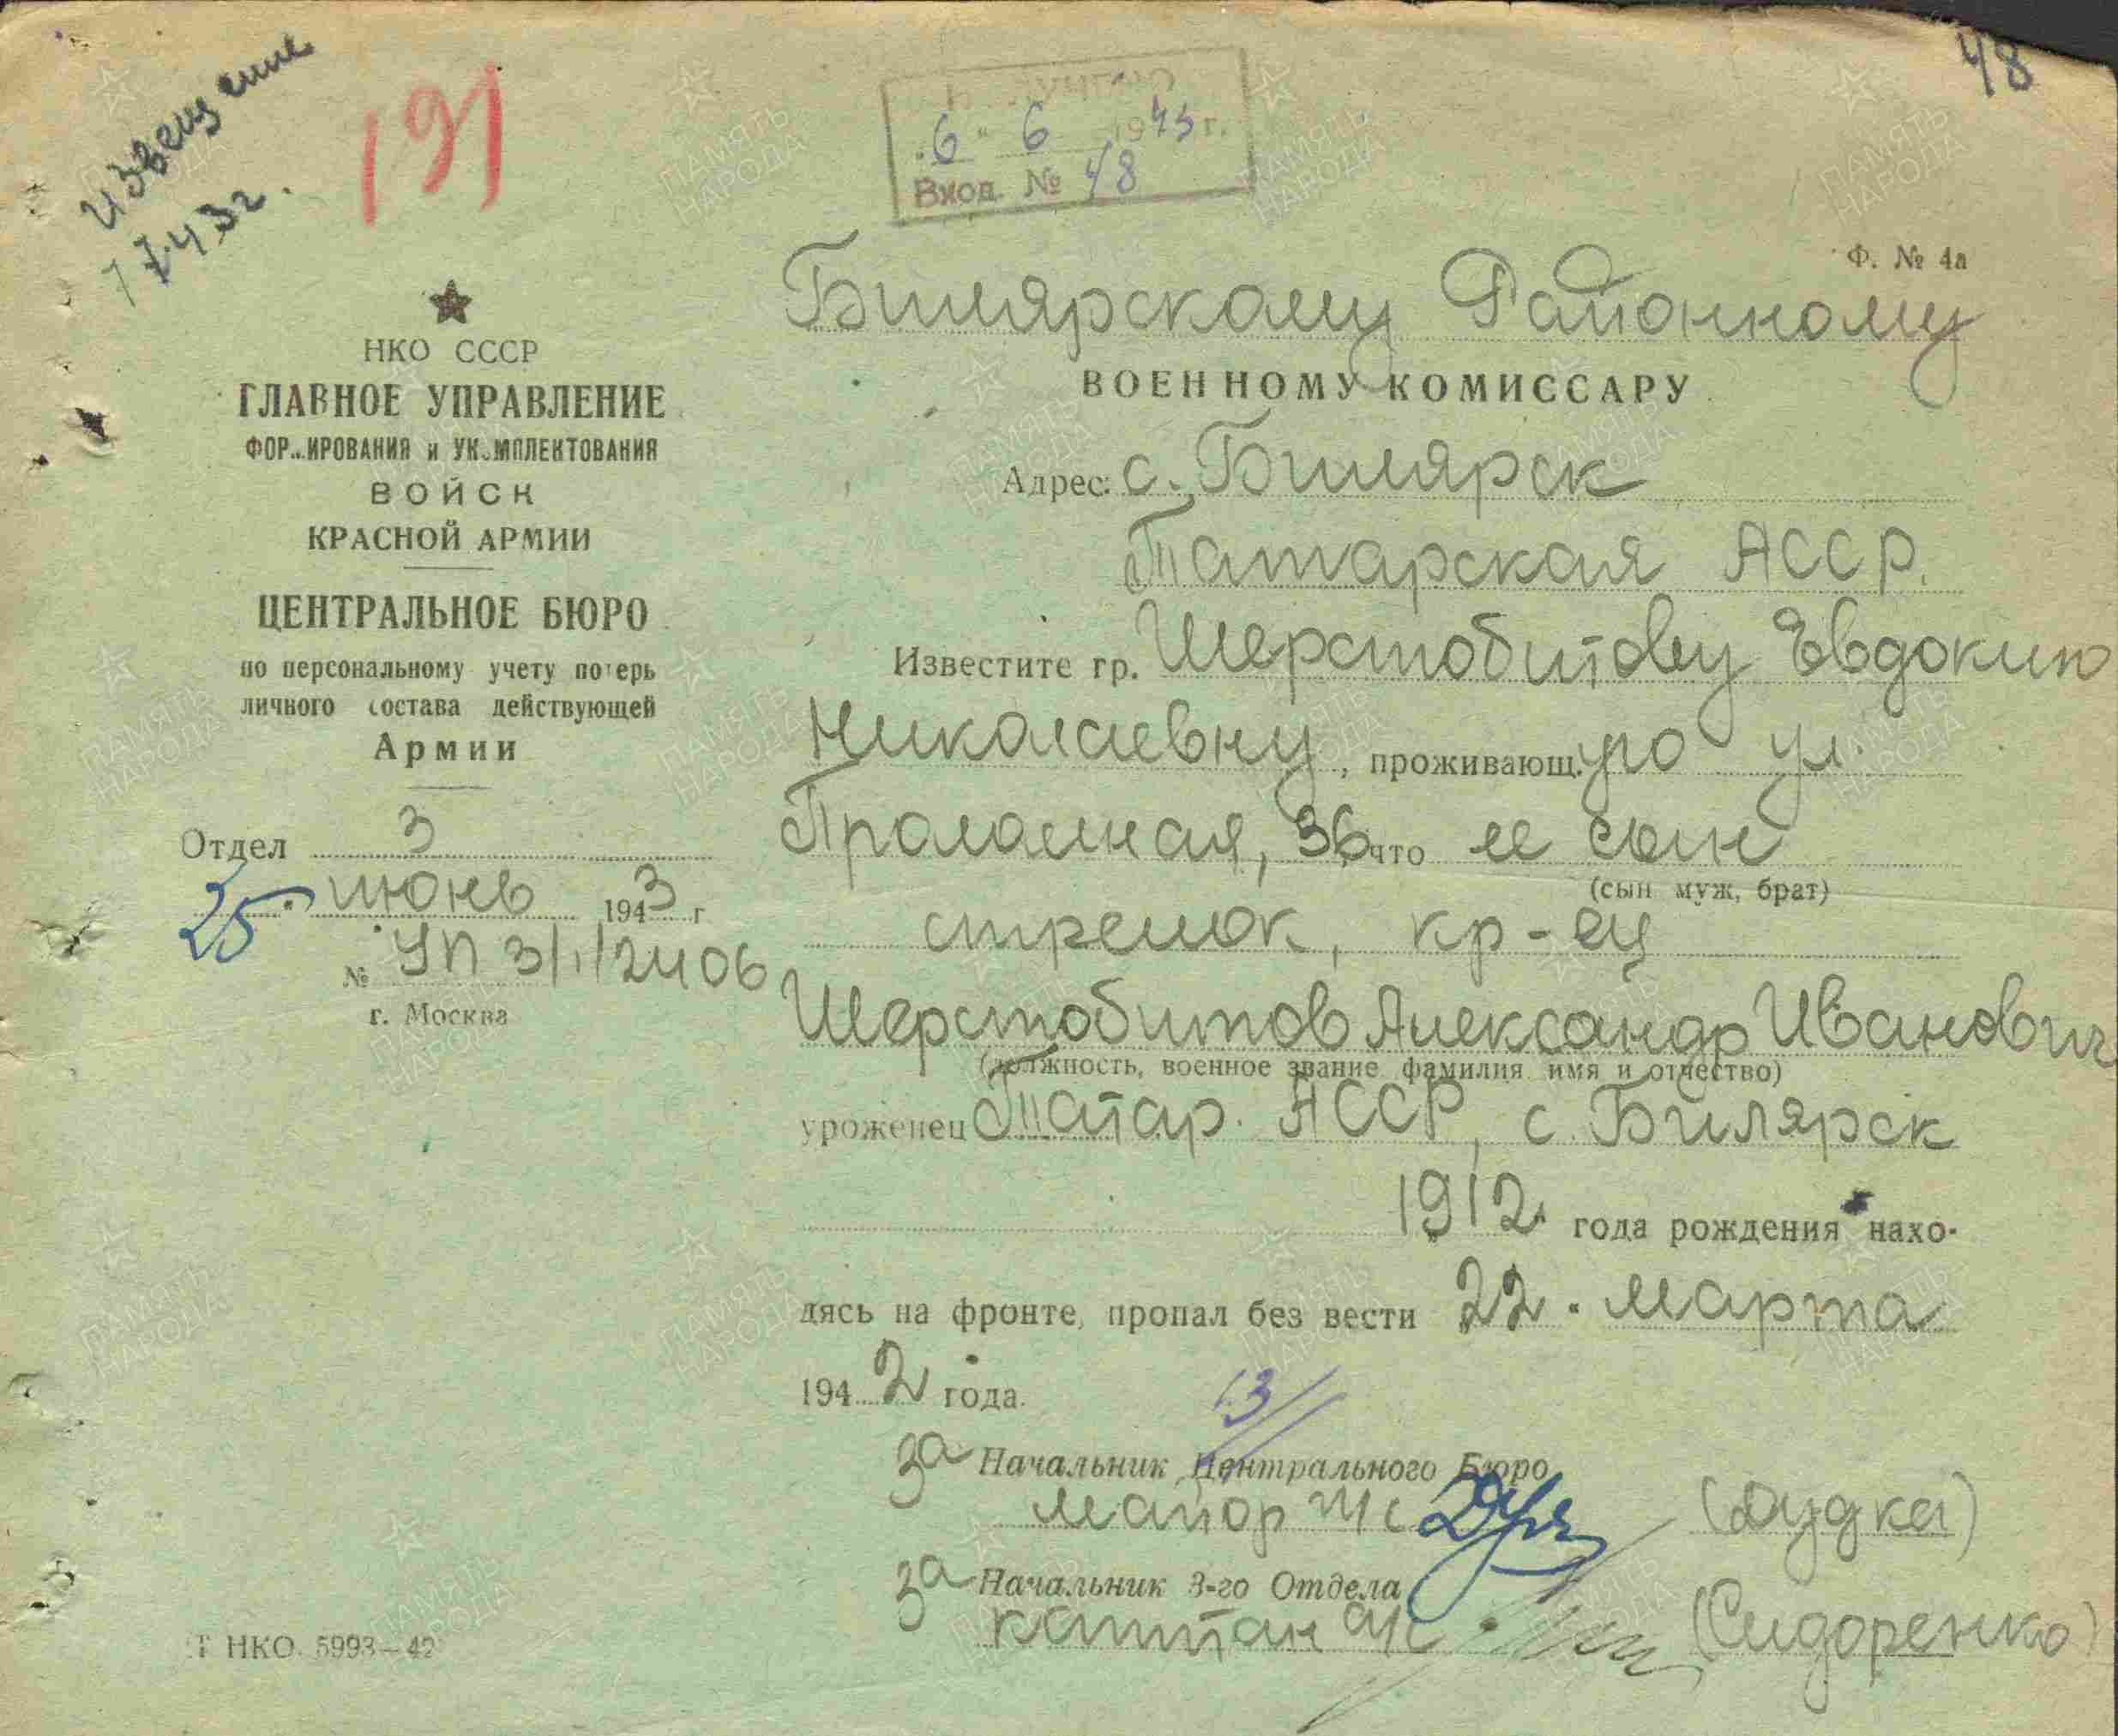 извещение
7/7.43г.
191
48
6 " 6 1943 г.
Вход. № 48
Ф. № 4а
НКО СССР
ГЛАВНОЕ УПРАВЛЕНИЕ
ФОРМИРОВАНИЯ и УКОМПЛЕКТОВАНИЯ
ВОЙСК
КРАСНОЙ АРМИИ
ЦЕНТРАЛЬНОЕ БЮРО
по персональному учету потерь
личного состава действующей
Армии
Отдел 3
25 " июнь 1943 г
№ УП 3/1/2406
г. Москва
Билярскому Районному
ВОЕННОМУ КОМИССАРУ
Адрес: с. Билярск
Татарская АССР.
Известите гр. Шерстобитову Евдокию
Николаевну, проживающ. ую ул.
Проломная, 36 что ее сын
(сын муж, брат)
стрелок, кр-ец
Шерстобитов Александр Иванович
(должность, военное звание фамилия имя и отчество)
уроженец Татар. АССР, с. Билярск
1912 года рождения нахо-
дясь на фронте, пропал без вести 22 . марта
1942 года.
за Начальник Центрального Бюро
майор (Дудка)
за Начальник 3-го Отдела
капитан (Сидоренко)
Т НКО. 5993—42
ПАМЯТЬ НАРОДА